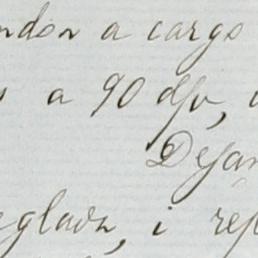 ndon a cargo
a 90 d/v,
Dejan
eglada, i ref